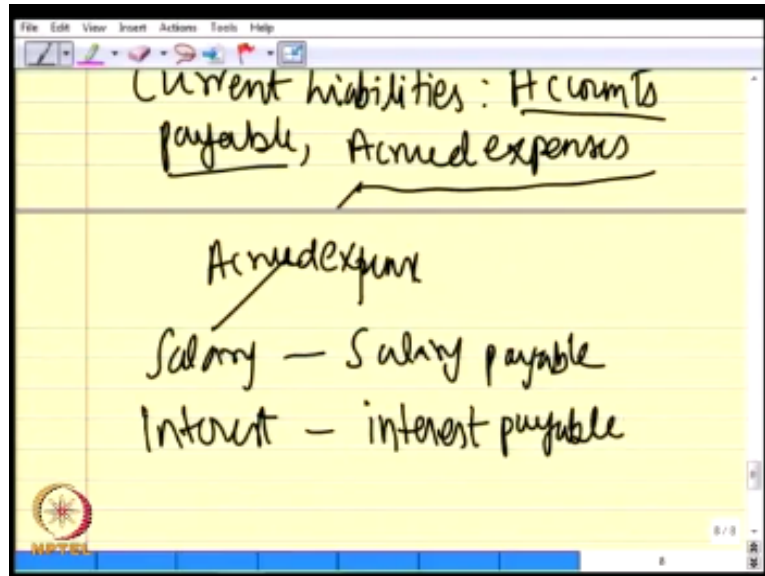 File Edit View Insert Actions Tools Help
Current liabilities : Accounts
payable, Accrued expenses
Accrued expense
Salary — Salary payable
Interest — interest payable
NPTEL
8/8
8